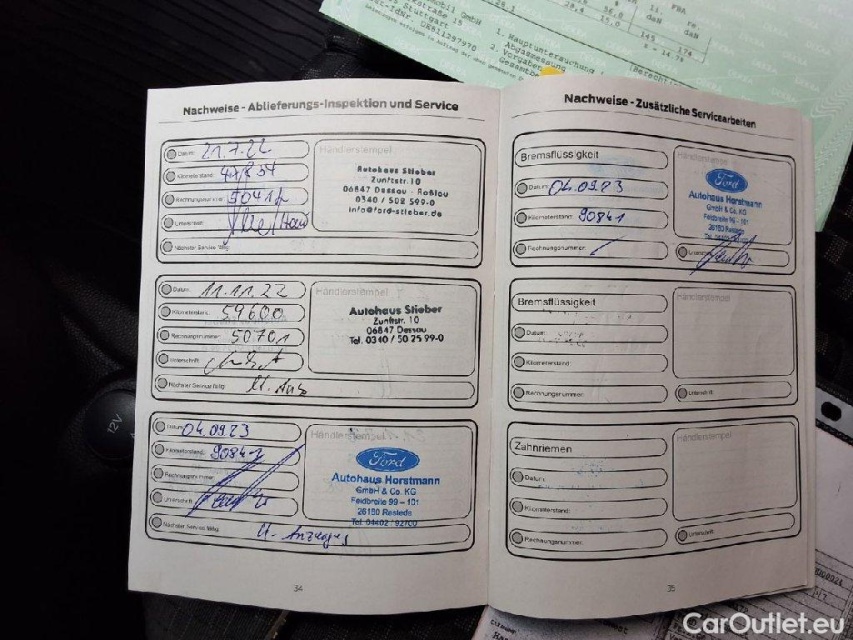 mobil GmbH
Stuttgart
1. Hauptuntersuchung
2. Vorgaben
Nachweise - Ablieferungs-Inspektion und Service
Datum: 21.7.22
Händlerstempel
Kilometerstand:
Rechnungsnummer:
Unterschrift:
Nächster Service fällig:
Autohaus Stieber
Zunftstr. 10
06847 Dessau - Roßlau
0340 / 502 599-0
info@ford-stieber.de
Datum: 11.11.22
Händlerstempel
Kilometerstand: 59600
Rechnungsnummer: 50701
Unterschrift:
Nächster Service fällig:
Autohaus Stieber
Zunftstr. 10
06847 Dessau
Tel. 0340 / 50 25 99-0
Datum: 04.09.23
Händlerstempel
Kilometerstand: 90841
Rechnungsnummer:
Unterschrift:
Nächster Service fällig: lt. Anzeige
Ford
Autohaus Horstmann
GmbH & Co. KG
Feldbreite 99 - 101
26180 Rastede
Tel. 04402 / 92700
34
Nachweise - Zusätzliche Servicearbeiten
Bremsflüssigkeit
Händlerstempel
Datum: 04.09.23
Kilometerstand: 90841
Rechnungsnummer:
Unterschrift:
Ford
Autohaus Horstmann
GmbH & Co. KG
Feldbreite 99 - 101
26180 Rastede
Bremsflüssigkeit
Händlerstempel
Datum:
Kilometerstand:
Rechnungsnummer:
Unterschrift:
Zahnriemen
Händlerstempel
Datum:
Kilometerstand:
Rechnungsnummer:
Unterschrift:
35
12V
CarOutlet.eu